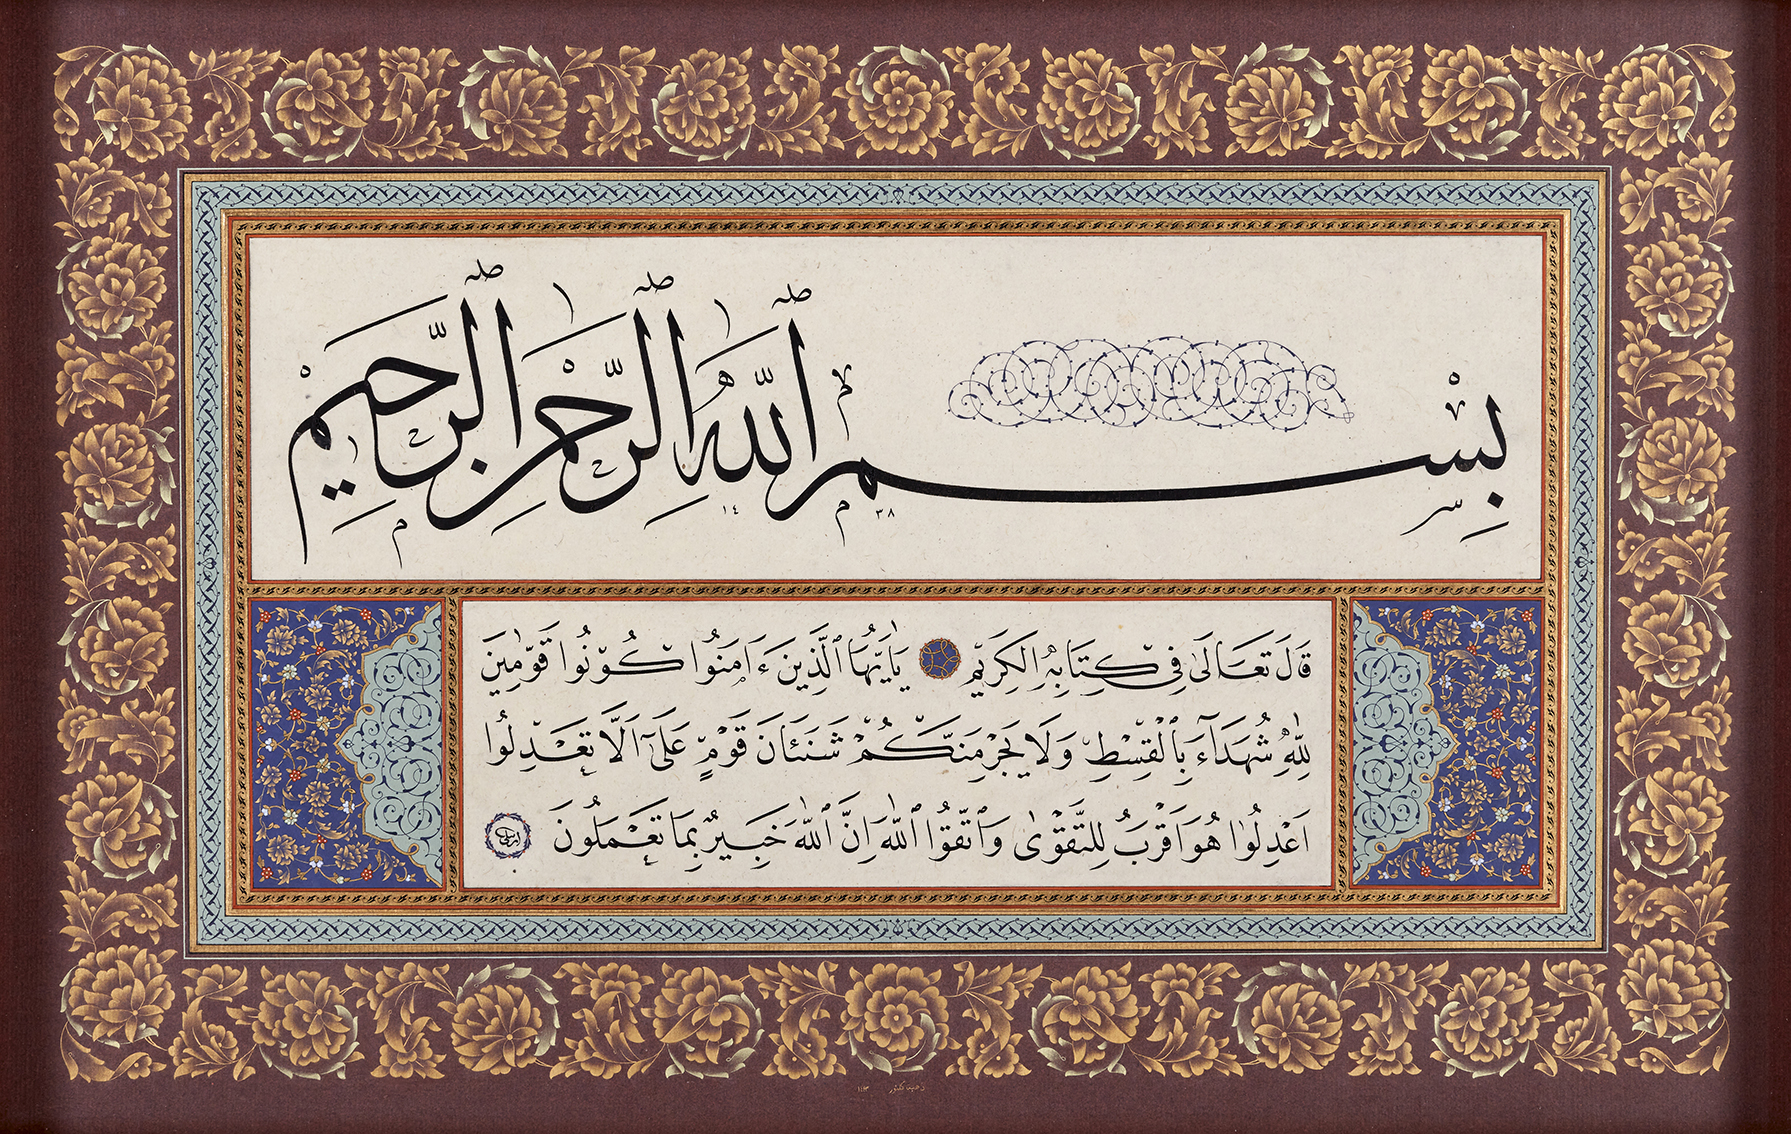 بِسْمِ ٱللَّهِ ٱلرَّحْمٰنِ ٱلرَّحِيمِ
١٤ ٣٨
قَالَ تَعَالَىٰ فِي كِتَابِهِ الكَرِيمِ يَٰأَيُّهَا ٱلَّذِينَ ءَامَنُوا كُونُوا قَوَّٰمِينَ
لِلَّهِ شُهَدَآءَ بِٱلْقِسْطِ وَلَا يَجْرِمَنَّكُمْ شَنَـَٔانُ قَوْمٍ عَلَىٰٓ أَلَّا تَعْدِلُوا
اعْدِلُوا هُوَ أَقْرَبُ لِلتَّقْوَىٰ وَٱتَّقُوا ٱللَّهَ إِنَّ ٱللَّهَ خَبِيرٌ بِمَا تَعْمَلُونَ